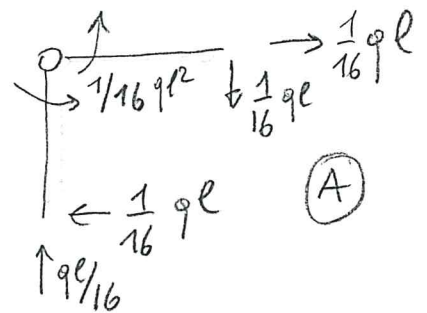 1/16 ql
1/16 ql²
1/16 ql
A
1/16 ql
ql/16